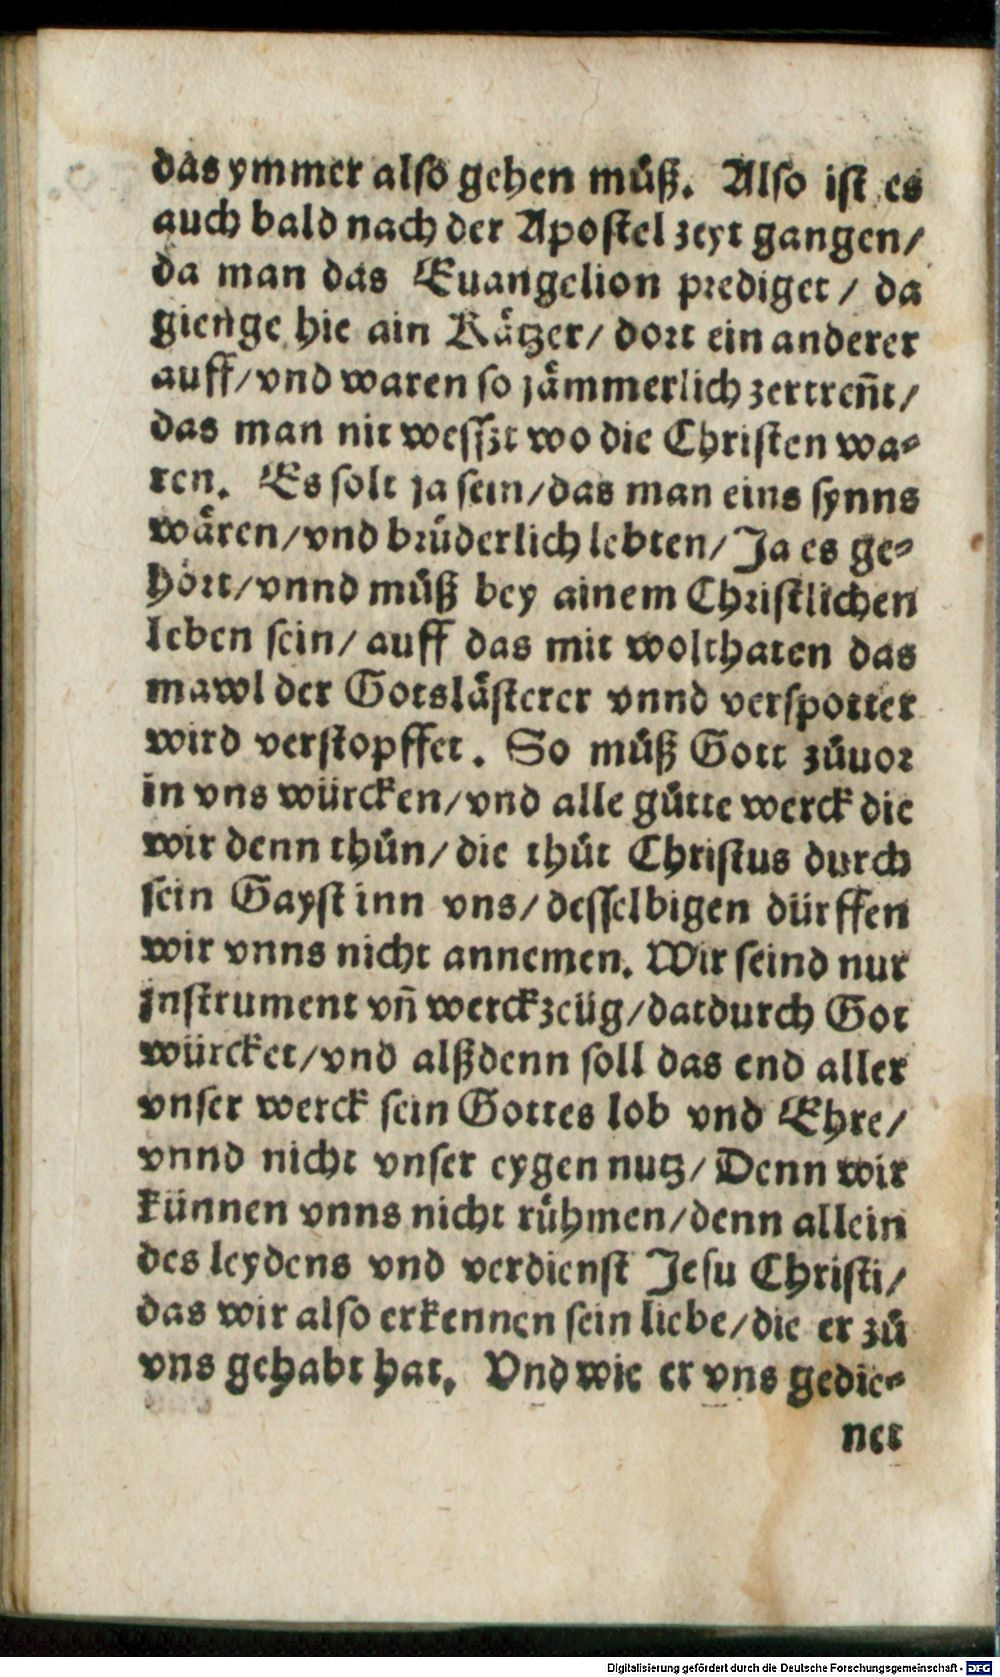 das ymmer also gehen muͦß. Also ist es
auch bald nach der Apostel zeyt gangen/
da man das Euangelion prediget / da
gienge hie ain Kaͤtzer/ dort ein anderer
auff/vnd waren so jaͤmmerlich zertren̄t/
das man nit wesszt wo die Christen wa⸗
ren. Es solt ja sein/das man eins synns
waͤren/vnd bruͤderlich lebten/Ja es ge⸗
hoͤrt/vnnd muͦß bey ainem Christlichen
leben sein/ auff das mit wolthaten das
mawl der Gotslaͤsterer vnnd verspotter
wird verstopffet. So muͦß Gott zuͦuor
in vns würcken/vnd alle guͦtte werck die
wir denn thuͦn/die thuͦt Christus durch
sein Gayst inn vns/desselbigen dürffen
wir vnns nicht annemen. Wir seind nur
jnstrument vn̄ werckzeüg/datdurch Got
würcket/vnd alßdenn soll das end aller
vnser werck sein Gottes lob vnd Ehre/
vnnd nicht vnser eygen nutz/Denn wir
künnen vnns nicht ruͤhmen/denn allein
des leydens vnd verdienst Jesu Christi/
das wir also erkennen sein liebe/die er zuͦ
vns gehabt hat. Vnd wie er vns gedie⸗
net
Digitalisierung gefördert durch die Deutsche Forschungsgemeinschaft - DFG